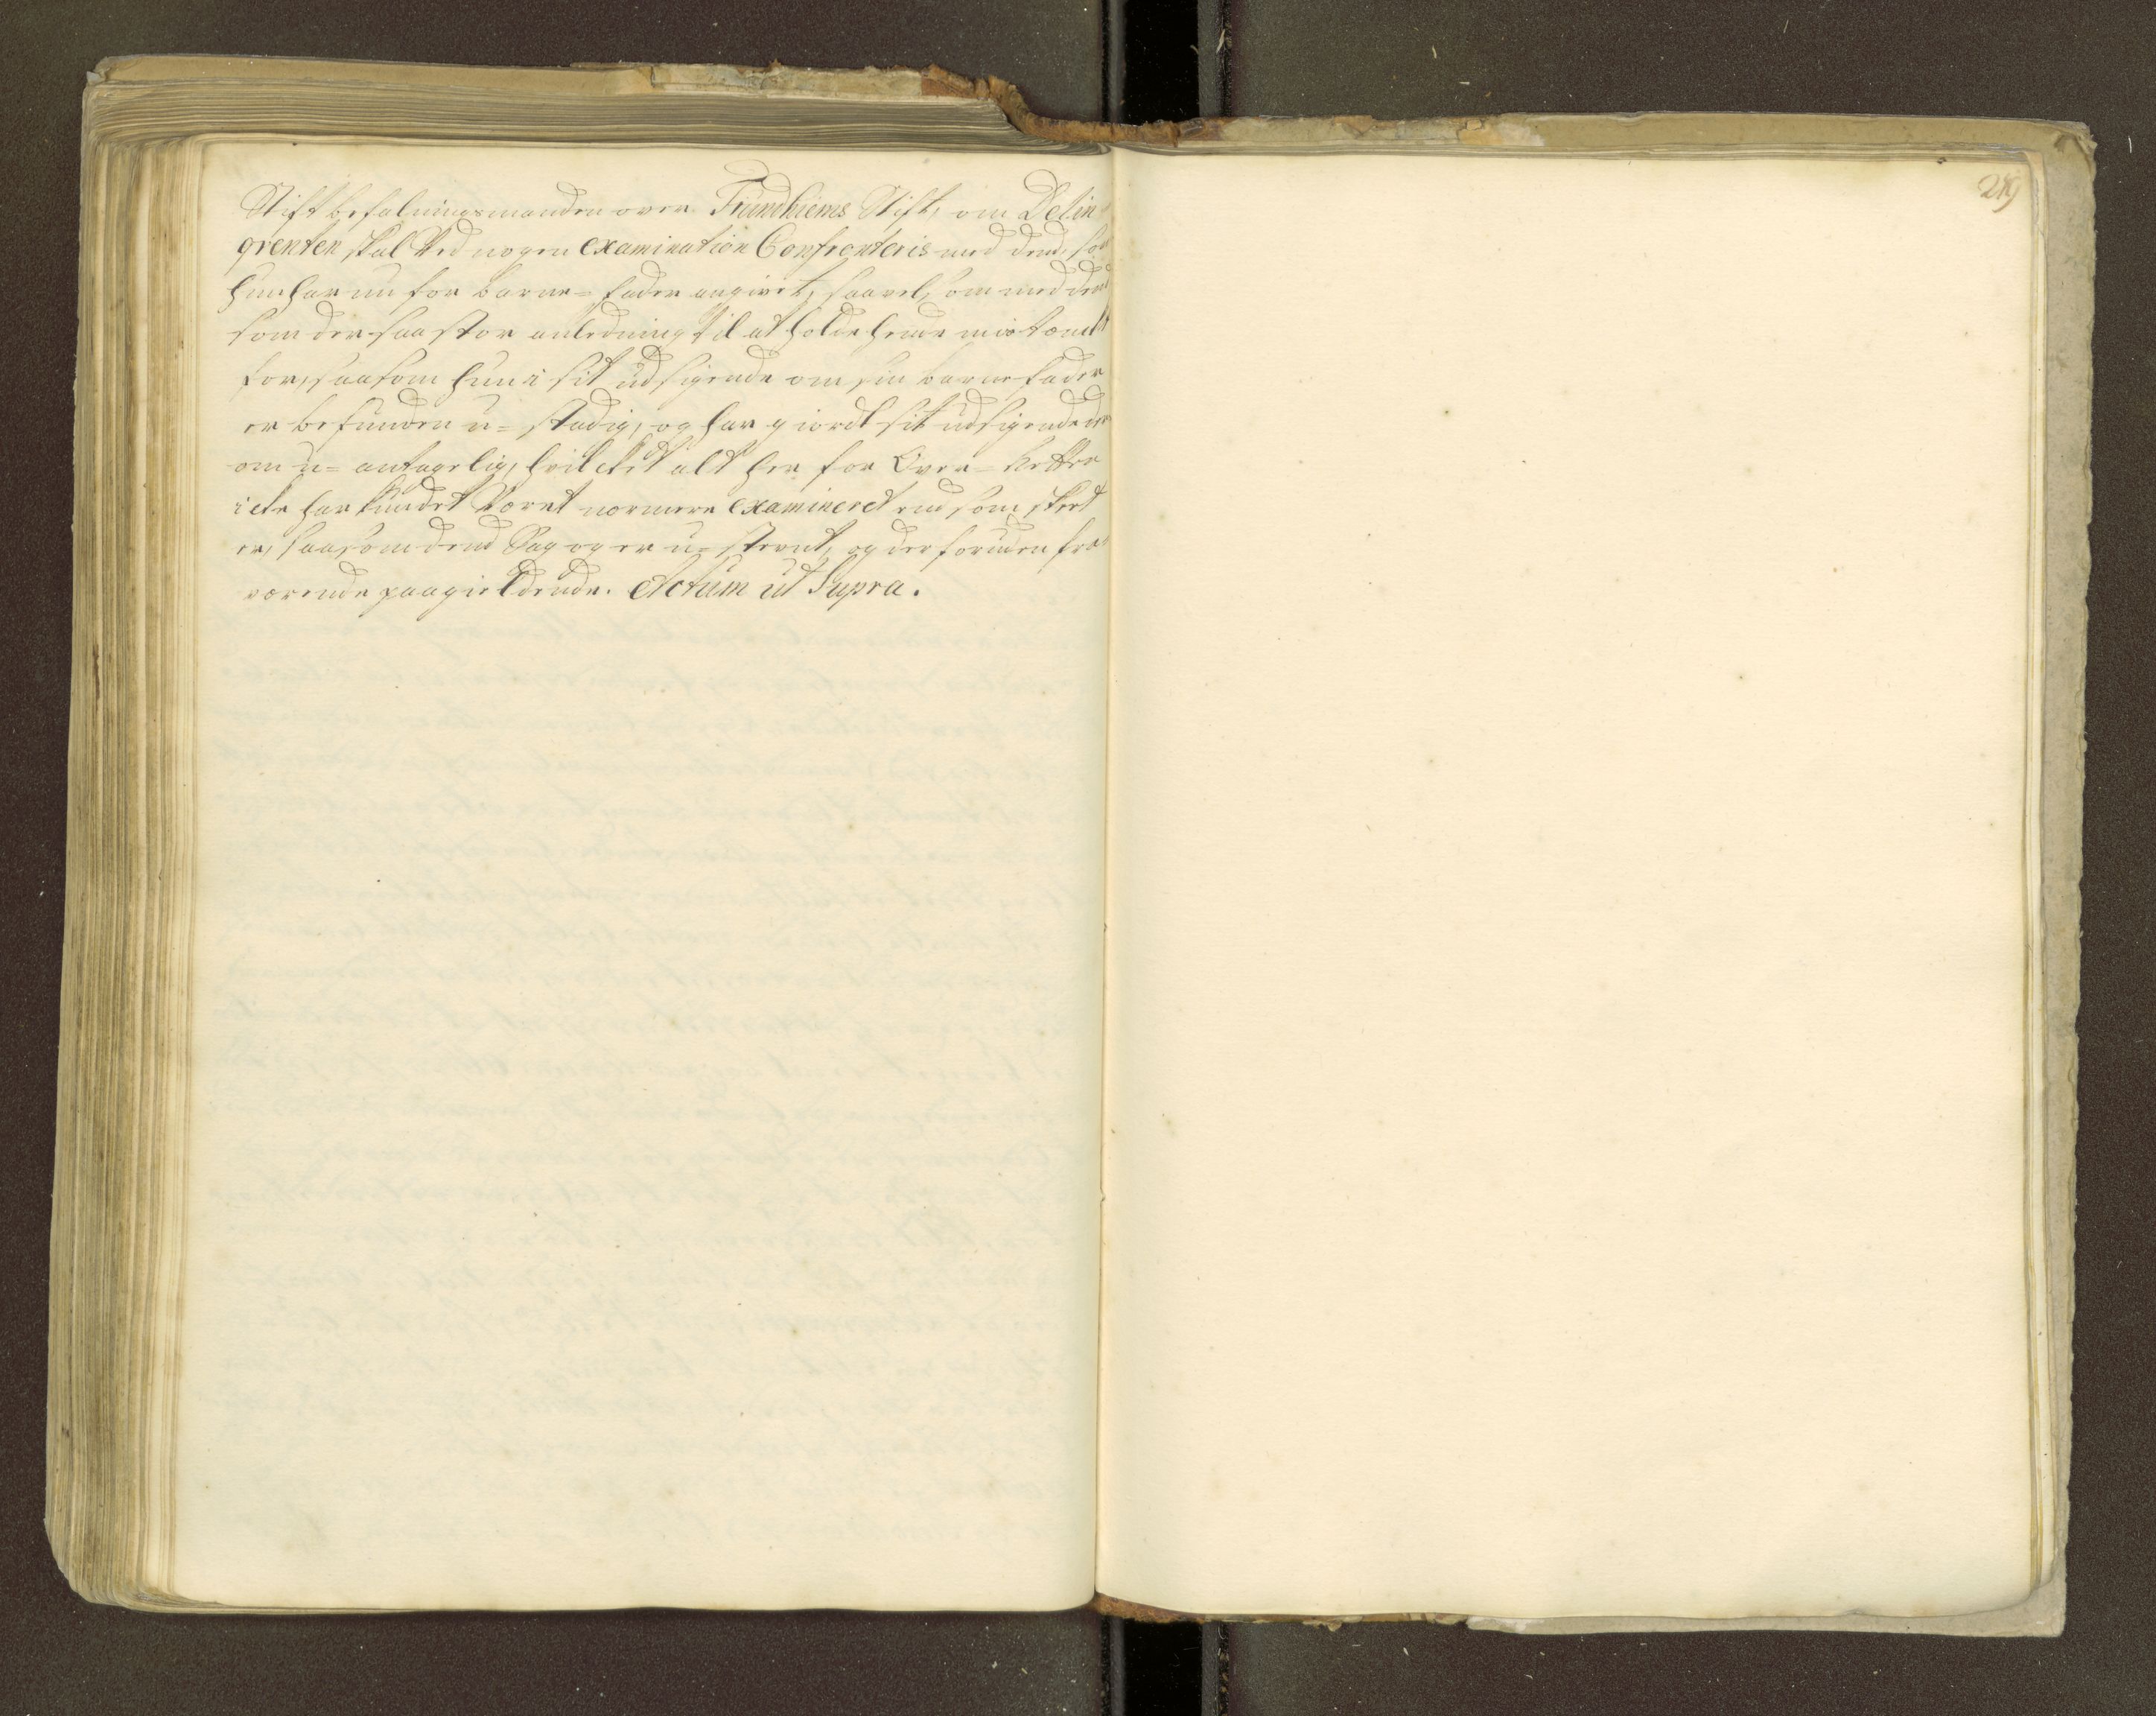 Stiftbefalningsmanden over Trundhiems Stift, om Delin
qventen skal ved nogen examination Confronteris med dend, som
hun har nu for barne=fader angivet, saavel, som med dend
som der saa stor anledning til at holde hende mistænkt
for, saasom hun i sit udsigende om sin barnefader
er befunden u=stadig, og har giordt sit udsigende der
om u=antagelig, hvilcket alt her for Over=Retten
icke har kundet været nærmere examineret end som skeed
er, saasom dend Sag og er u=stevnt, og der foruden fra
værende paagieldende. Actum ut Supra.
249